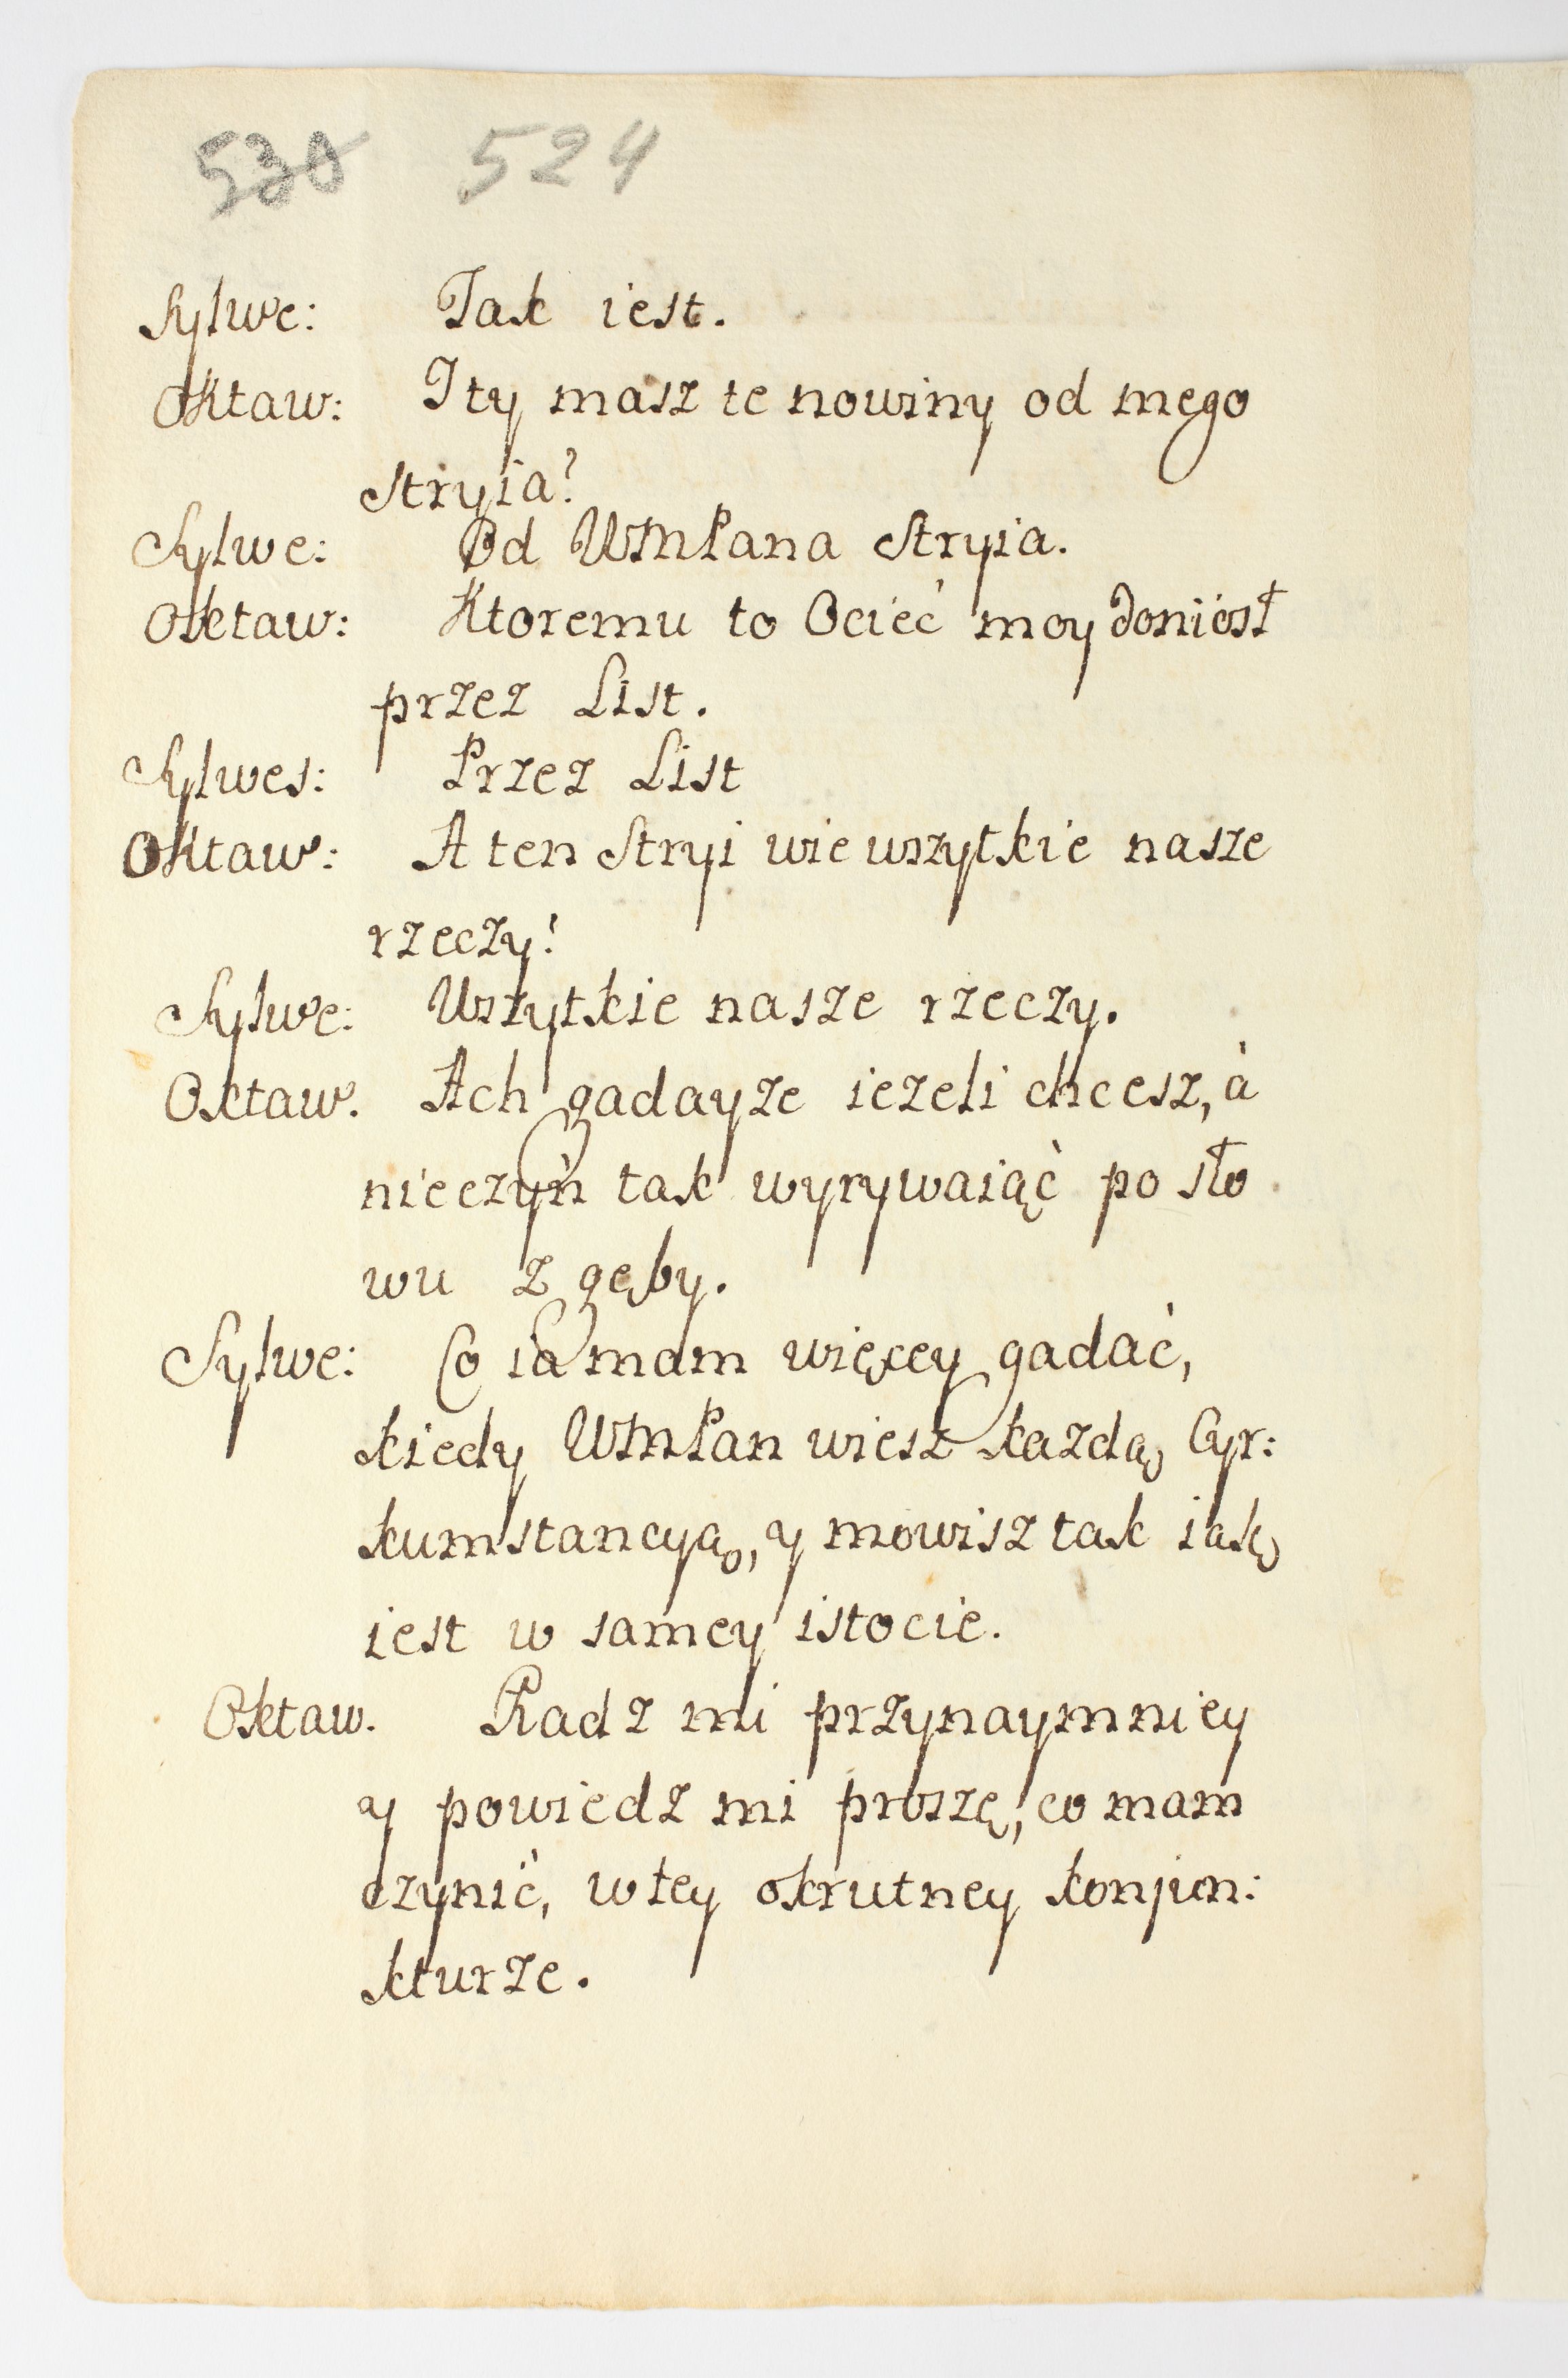 530 524
Sylwe: Tak iest.
Oktaw: I ty masz te nowiny od mego
Stryia?
Sylwe: Od WMPana Stryia.
Oktaw: Ktoremu to Ociéć moy doniósł
przez List.
Sylwes: Przez List
Oktaw: A ten Stryi wie wszytkie nasze
rzeczy?
Sylwe: Wszytkie nasze rzeczy.
Oktaw. Ach gadayze iezeli chcesz, à
nieczyń tak wyrywaiąć po sło
wu z gęby.
Sylwe: Co ia mam więcey gadać,
kiedy WMPan wiesz kazdą Cyr:
kumstancyą, y mowisz tak iak
iest w samey istocie.
Oktaw. Radz mi przynaymniey
y powiedz mi proszę, co mam
czynić, w tey okrutney konjun:
kturze.